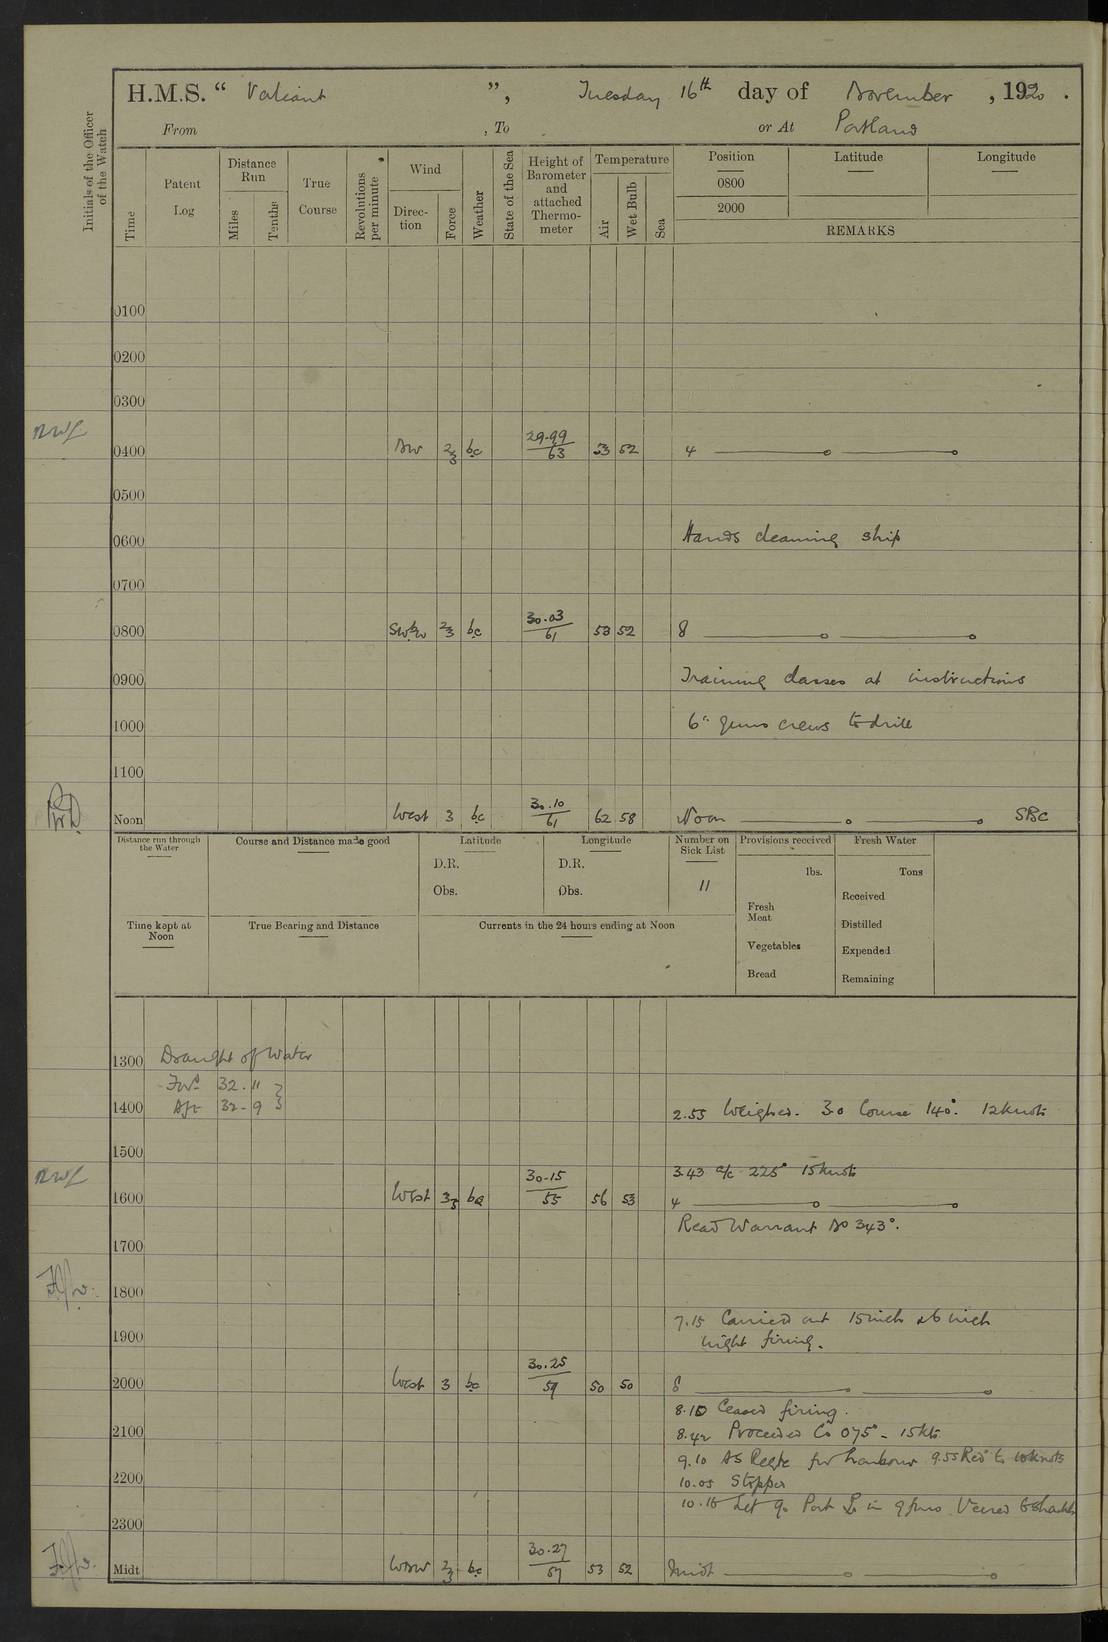 H.M.S. “ Valiant ”, Tuesday 16th day of November , 1920 .
From , To or At Portland
Initials of the Officer of the Watch
Time
Patent Log
Distance Run
Miles
Tenths
True Course
Revolutions per minute
Wind
Direction
Force
Weather
State of the Sea
Height of Barometer and attached Thermometer
Temperature
Air
Wet Bulb
Sea
Position
Latitude
Longitude
0800
2000
REMARKS
0100
0200
0300
0400 2/3 bc 29.99/63 53 52 4
0500
0600 Hands cleaning ship
0700
0800 SWbW 2/3 bc 30.03/61 53 52 8
0900 Training classes at instructions
1000 6" guns crews to drill
1100
Noon West 3 bc 30.10/61 62 58 Noon SBC
Distance run through the Water
Course and Distance made good
Latitude
D.R.
Obs.
Longitude
D.R.
Obs.
Number on Sick List
11
Provisions received
lbs.
Fresh Meat
Vegetables
Bread
Fresh Water
Tons
Received
Distilled
Expended
Remaining
Time kept at Noon
True Bearing and Distance
Currents in the 24 hours ending at Noon
1300 Draught of Water
Ford 32.11
1400 Aft 32-9 2.55 Weighed. 3.0 Course 140°. 12 knots
1500
3.43 a/c 225° 15 knots
1600 West bc 30.15/55 56 53 4
Read Warrant No 343°.
1700
1800
7.15 Carried out 15 inch & 6 inch
1900 night firing.
2000 West 3 bc 30.25/59 50 50 8
8.15 Ceased firing.
2100 8.42 Proceeded Co 075° - 15 kts
9.10 As Reqte for harbour 9.55 Red to 10 knots
2200 10.05 Stopped
10.15 Let go Port Veered 6 shackles
2300
Midt WSW 2/3 bc 30.27/57 53 52 Midt